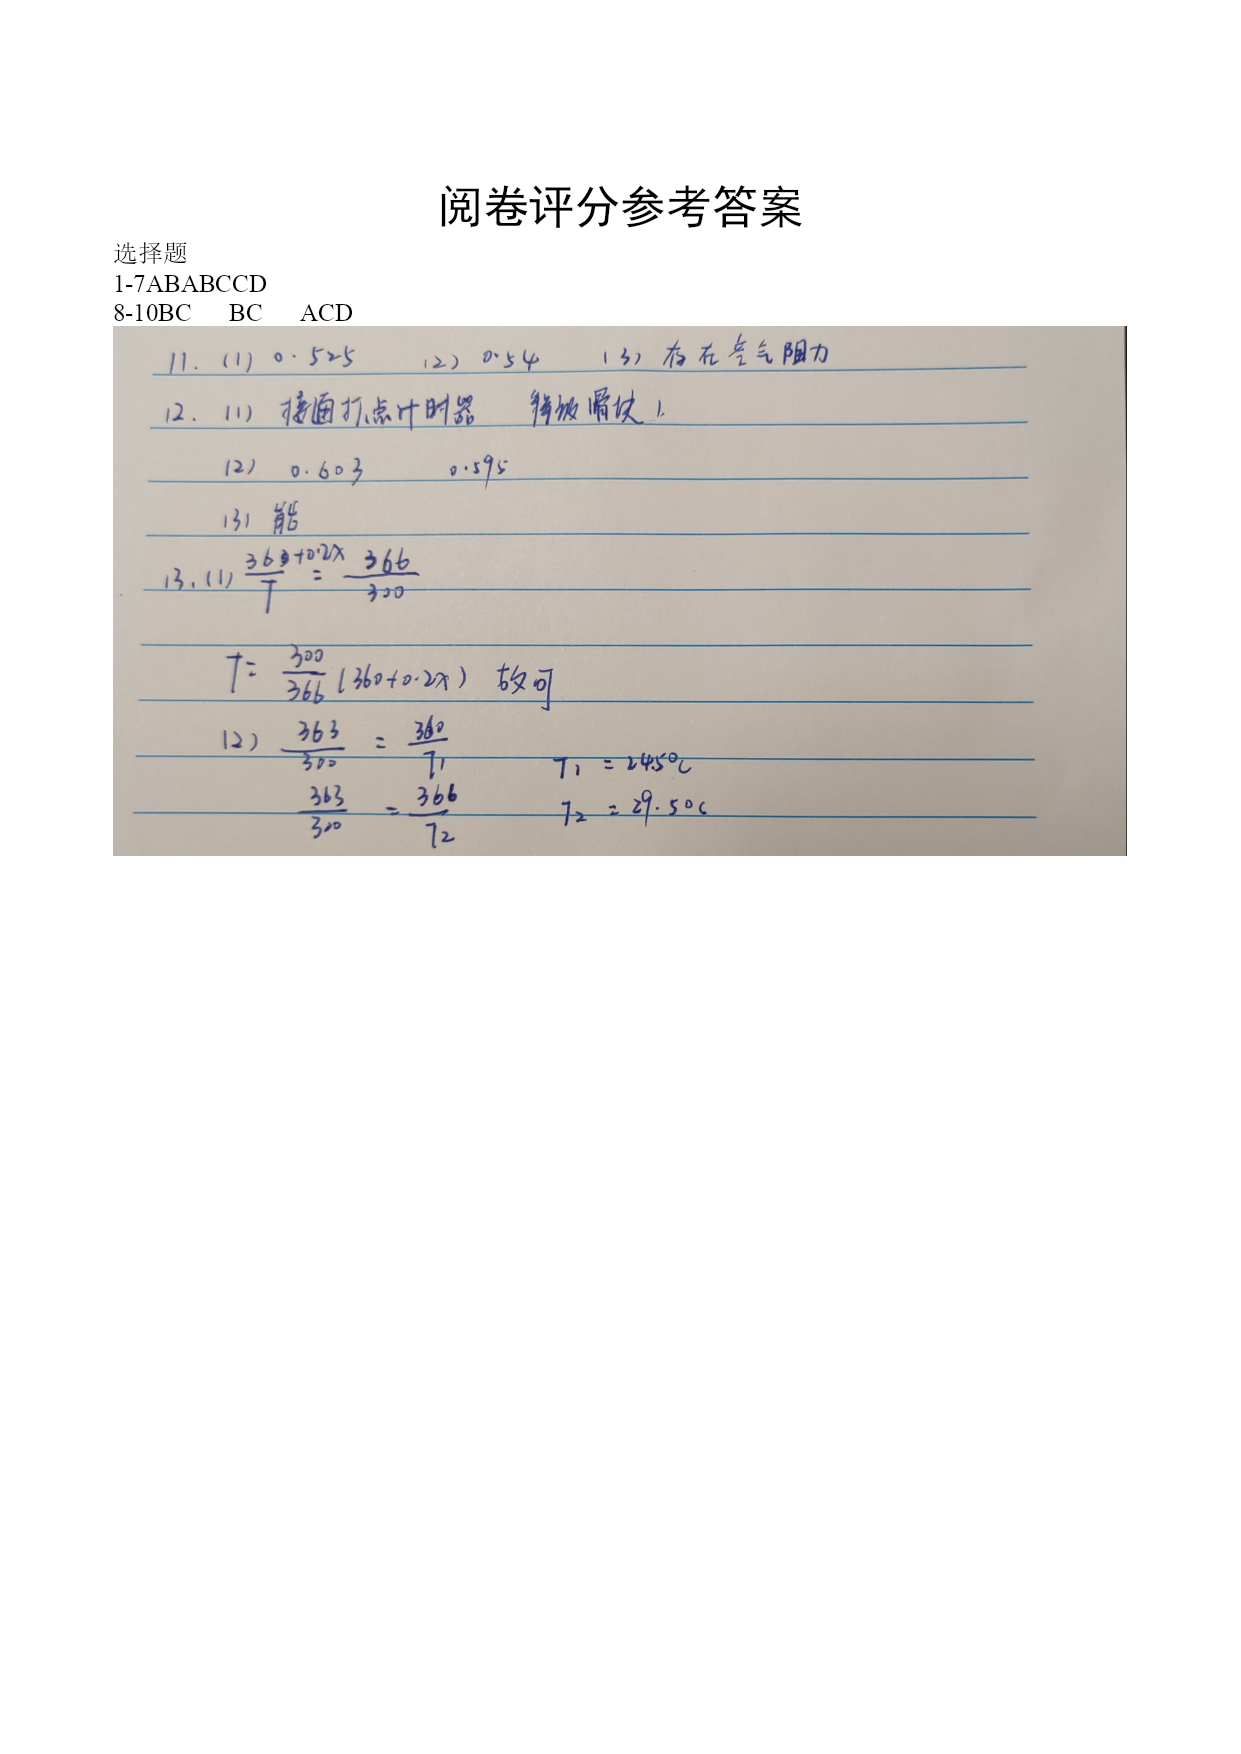 阅卷评分参考答案
选择题
1-7ABABCCD
8-10BC BC ACD
11. (1) 0.525 (2) 0.54 (3) 存在空气阻力
12. (1) 接通打点计时器 释放滑块1.
(2) 0.603 0.595
(3) 能
13. (1) 363+0.2x/T = 366/300
T = 300/366 (360+0.2x) 故可
(2) 363/300 = 360/T1 T1 = 24.5℃
363/300 = 366/T2 T2 = 29.5℃